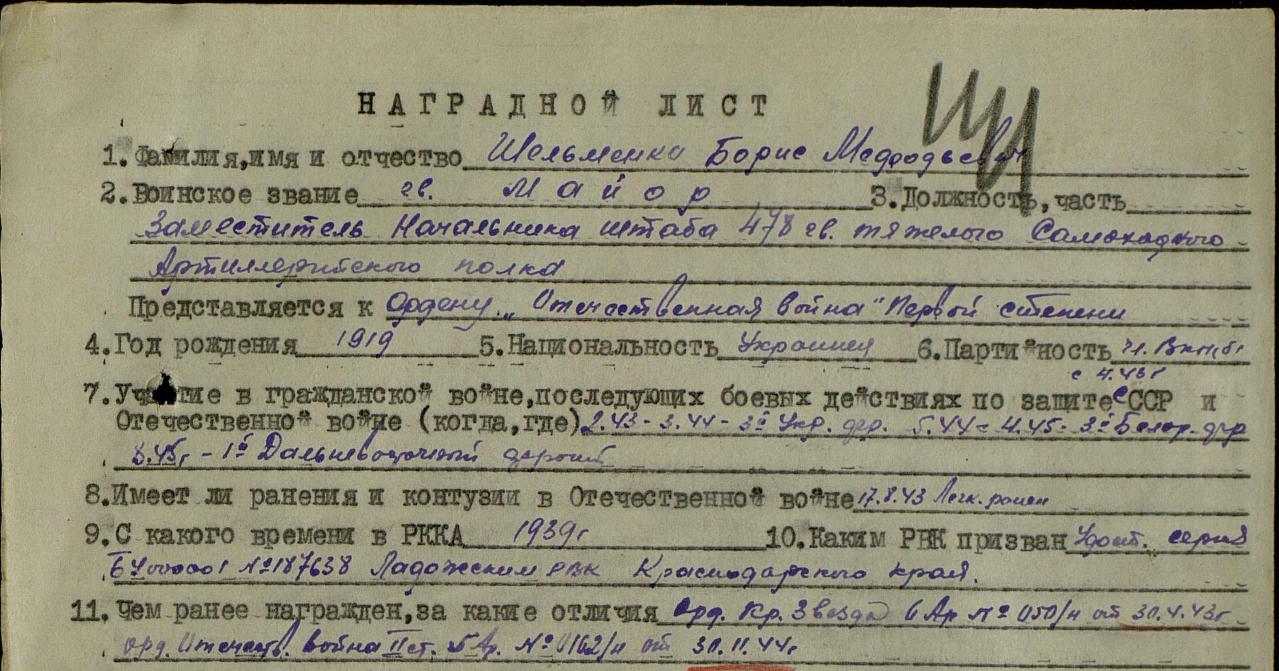 НАГРАДНОЙ ЛИСТ
1. Фамилия, имя и отчество Шельменко Борис Мефодьевич
2. Воинское звание гв. Майор 3. Должность, часть
Заместитель Начальника штаба 478 гв. тяжелого Самоходного
Артиллерийского полка
Представляется к Ордену „Отечественная война" Первой степени
4. Год рождения 1919 5. Национальность Украинец 6. Партийность чл. ВКП(б)
с 4.43г
7. Участие в гражданской войне, последующих боевых действиях по защите СССР и
Отечественной войне (когда, где) 2.43 - 3.44 - 3й Укр. фр. 5.44 - 4.45 - 3й Белор. фр
8.45г - 1й Дальневосточный фронт
8. Имеет ли ранения и контузии в Отечественной войне 17.8.43 Легк. ранен
9. С какого времени в РККА 1939г 10. Каким РВК призван Удост. серия
№187638 Ладожским РВК Краснодарского края.
11. Чем ранее награжден, за какие отличия Орд. Кр. Звезда 6 Ар №050/н от 30.4.43г
орд. Отечеств. война II ст. 5 Ар. №0162/н от 30.11.44г